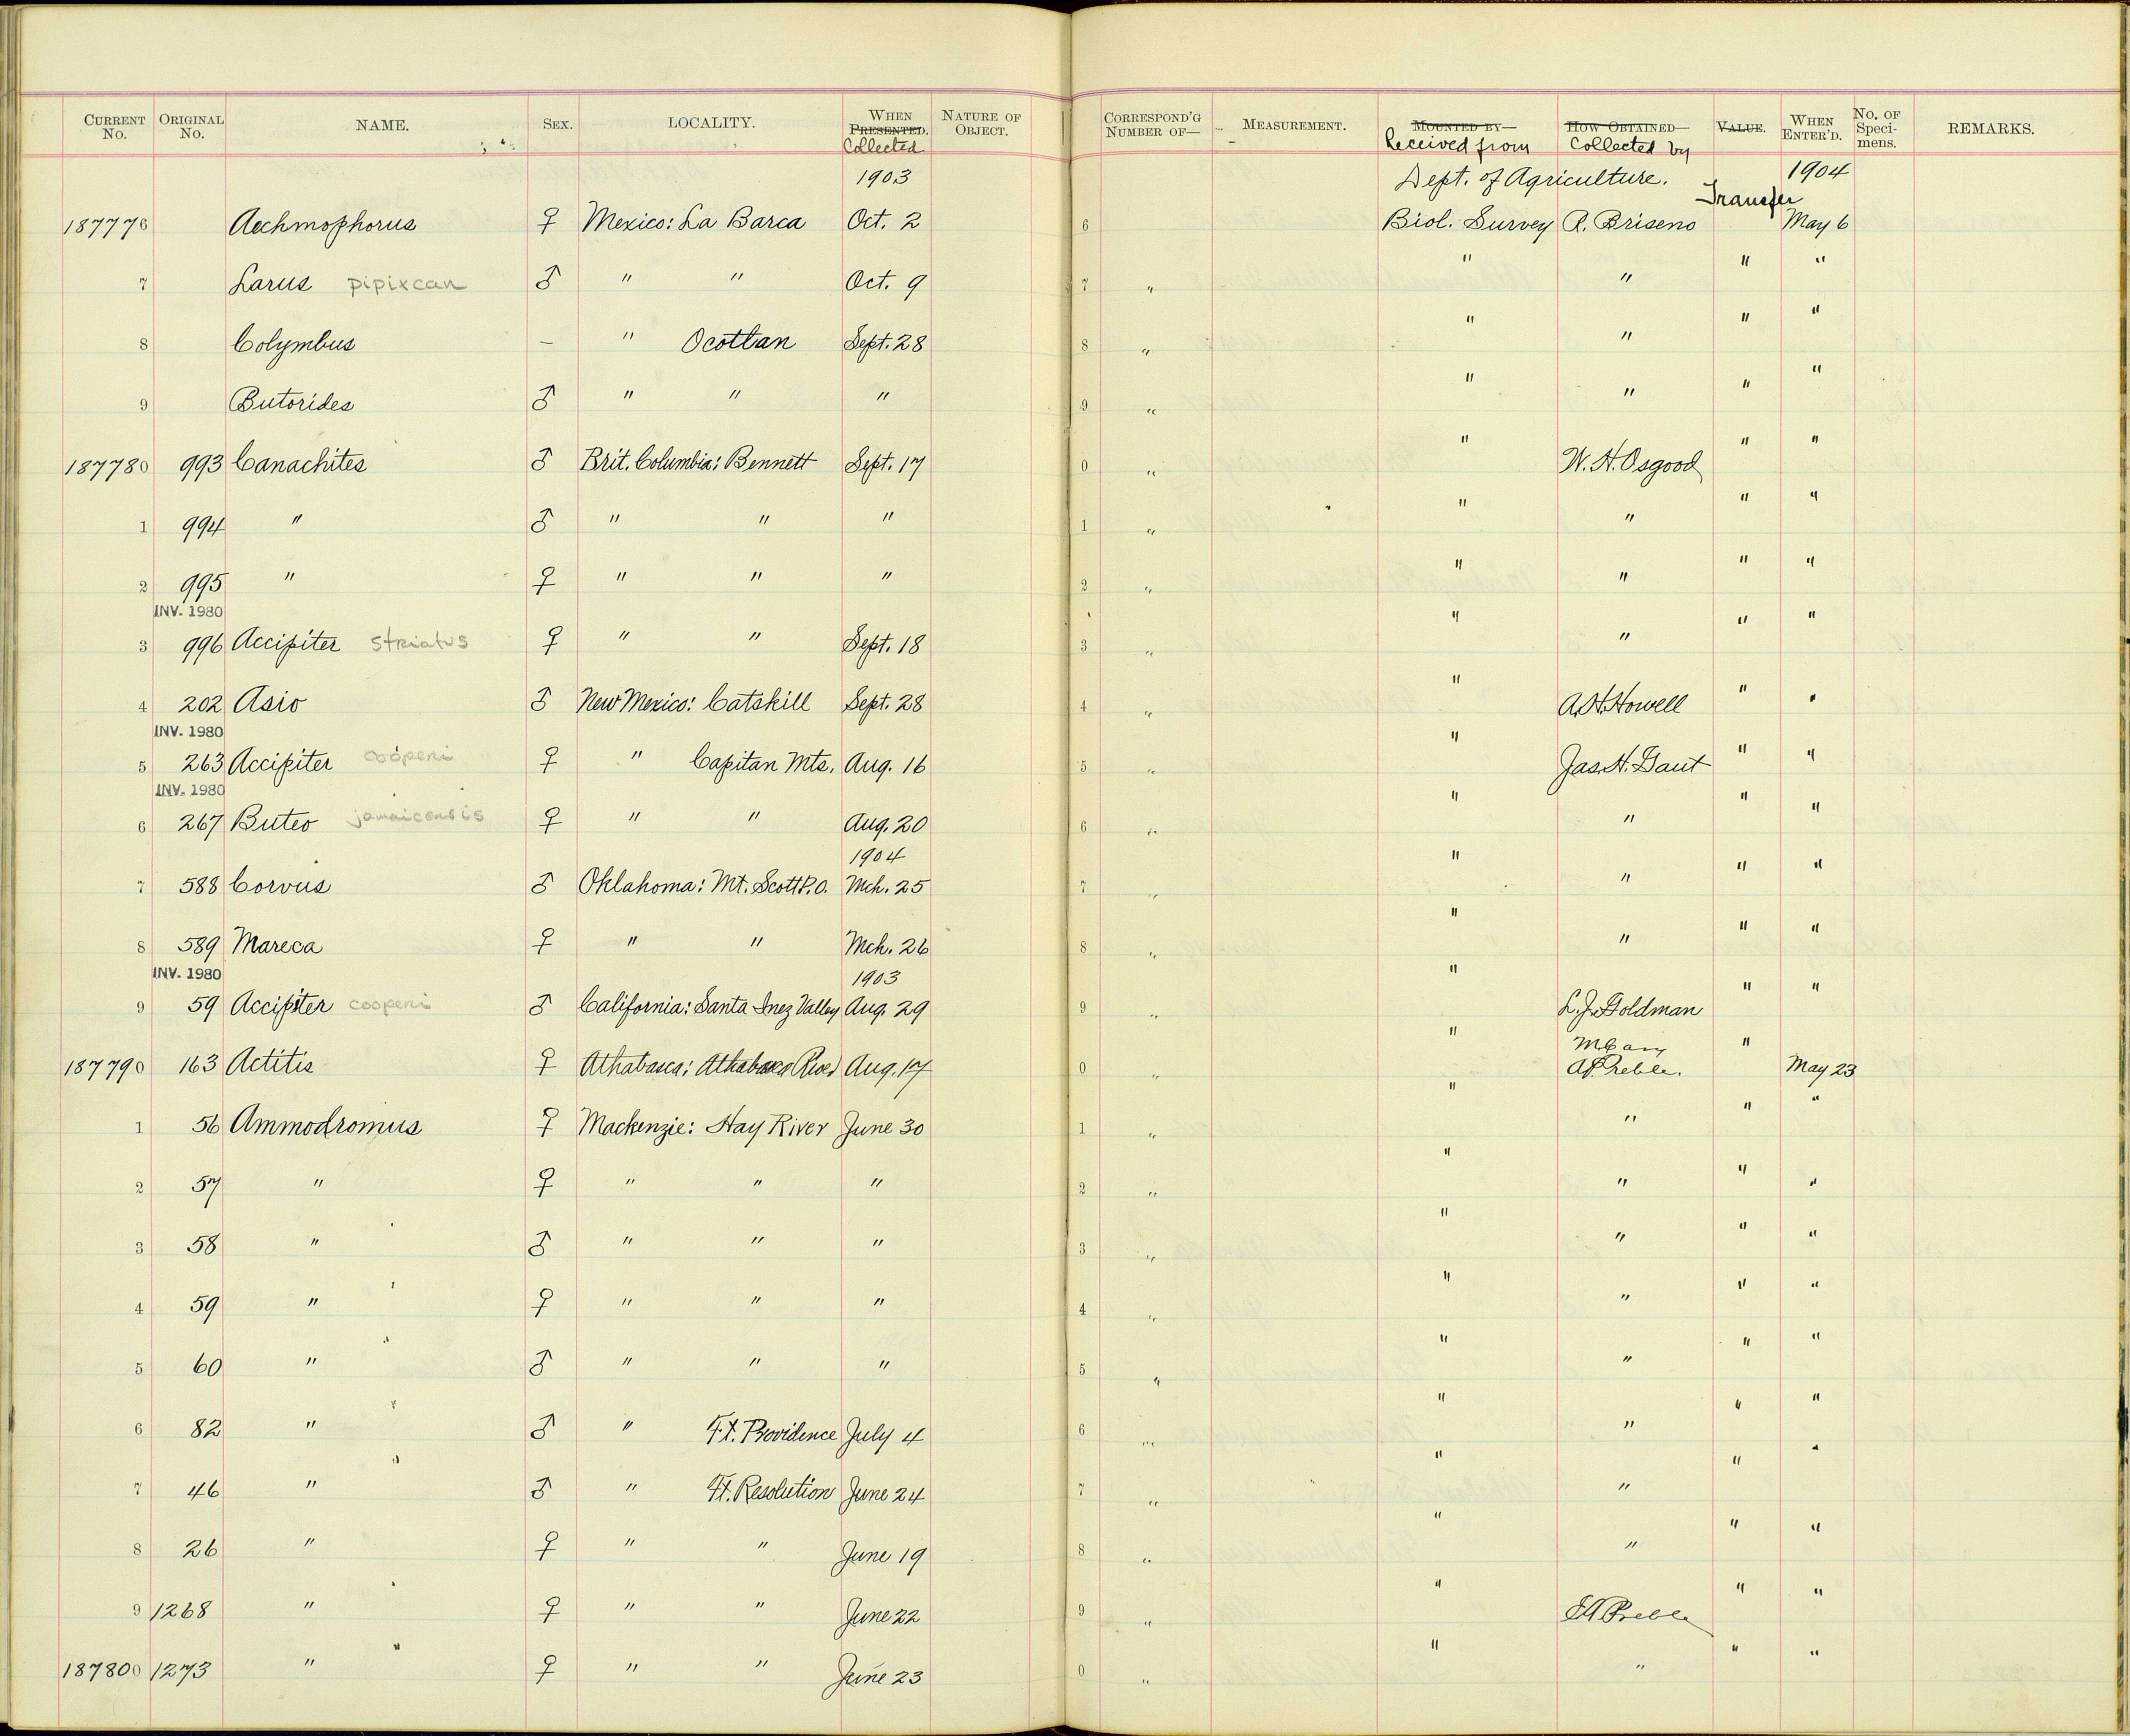 CURRENT No. ORIGINAL No. NAME. SEX. LOCALITY. WHEN PRESENTED. Collected NATURE OF OBJECT. CORRESPOND'G NUMBER OF— MEASUREMENT. MOUNTED BY— Received from HOW OBTAINED— Collected by VALUE. WHEN ENTER'D. No. OF Specimens. REMARKS.
1903 Dept. of Agriculture. 1904
Transfer
187776 Aechmophorus ♀ Mexico: La Barca Oct. 2 6 Biol. Survey R. Briseno May 6
7 Larus pipixcan ♂ " " Oct. 9 7 " " " " "
8 Colymbus — " Ocotlan Sept. 28 8 " " " " "
9 Butorides ♂ " " " 9 " " " " "
187780 993 Canachites ♂ Brit. Columbia: Bennett Sept. 17 0 " " W. H. Osgood " "
1 994 " ♂ " " " 1 " " " " "
2 995 " ♀ " " " 2 " " " " "
INV. 1980
3 996 Accipiter striatus ♀ " " Sept. 18 3 " " " " "
4 202 Asio ♂ New Mexico: Catskill Sept. 28 4 " " A. H. Howell " "
INV. 1980
5 263 Accipiter cooperi ♀ " Capitan Mts. Aug. 16 5 " " Jas. H. Gaut " "
INV. 1980
6 267 Buteo jamaicensis ♀ " " Aug. 20 6 " " " " "
1904
7 588 Corvus ♂ Oklahoma: Mt. Scott P.O. Mch. 25 7 " " " " "
8 589 Mareca ♀ " " Mch. 26 8 " " " " "
INV. 1980 1903
9 59 Accipiter cooperi ♂ California: Santa Inez Valley Aug. 29 9 " " L. J. Goldman " "
M Cary
187790 163 Actitis ♀ Athabasca: Athabasca River Aug. 17 0 " " A. Preble. " May 23
1 56 Ammodromus ♀ Mackenzie: Hay River June 30 1 " " " " "
2 57 " ♀ " " " 2 " " " " "
3 58 " ♂ " " " 3 " " " " "
4 59 " ♀ " " " 4 " " " " "
5 60 " ♂ " " " 5 " " " " "
6 82 " ♂ " Ft. Providence July 4 6 " " " " "
7 46 " ♂ " Ft. Resolution June 24 7 " " " " "
8 26 " ♀ " " June 19 8 " " " " "
9 1268 " ♀ " " June 22 9 " " EA Preble " "
187800 1273 " ♀ " " June 23 0 " " " " "